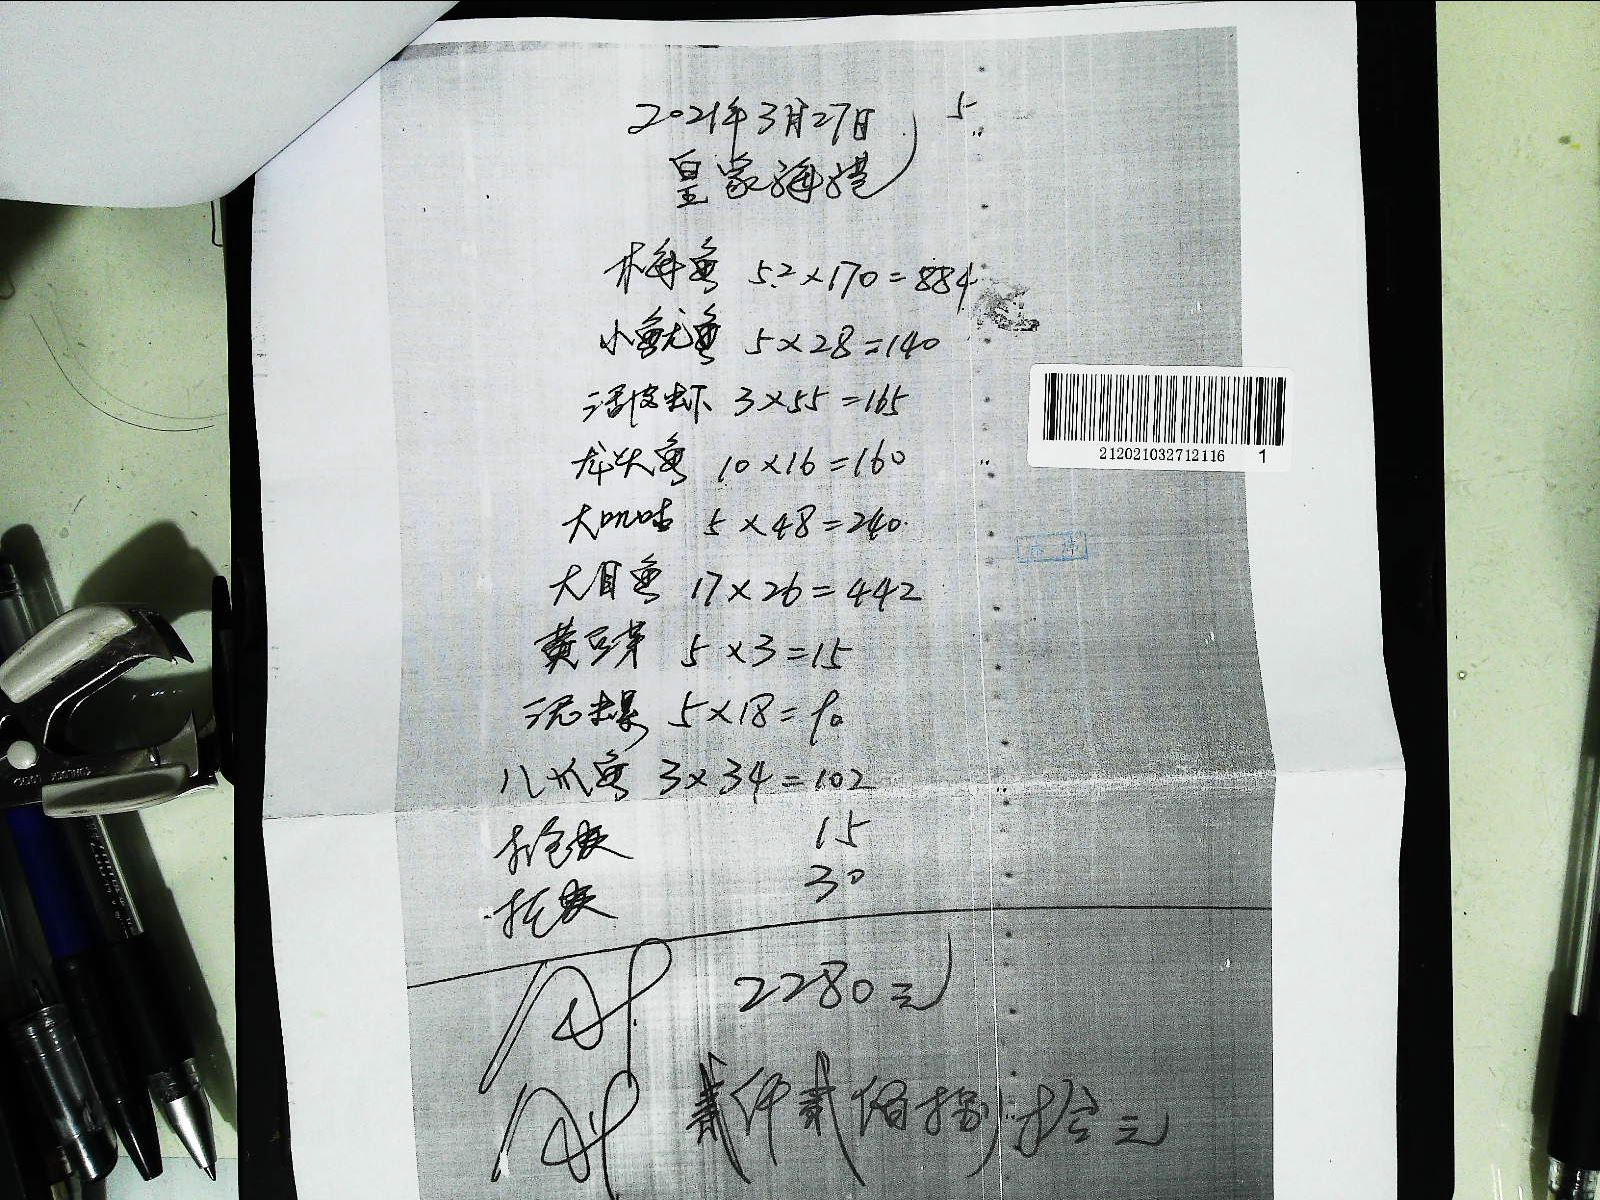 2021年3月27日 5
皇家海港
梅鱼 5.2×170=884
小鱿鱼 5×28=140
活皮虾 3×55=165
龙头鱼 10×16=160
大叭咕 5×48=240
大目鱼 17×26=442
黄豆芽 5×3=15
泥螺 5×18=90
八爪鱼 3×34=102
15
30
2280元
贰仟贰佰捌拾元
212021032712116 1